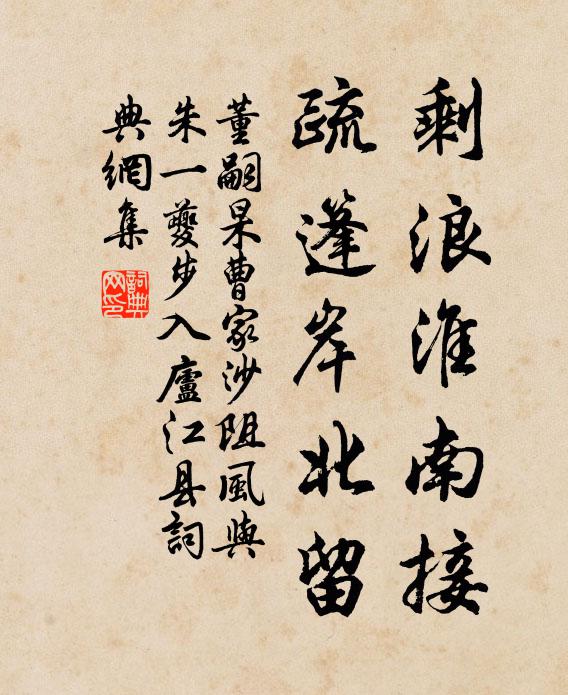 剩浪淮南接
疏篷岸北留
董嗣杲曹家沙阻風與
朱一夔步入廬江县詞
典網集
詞典
网印